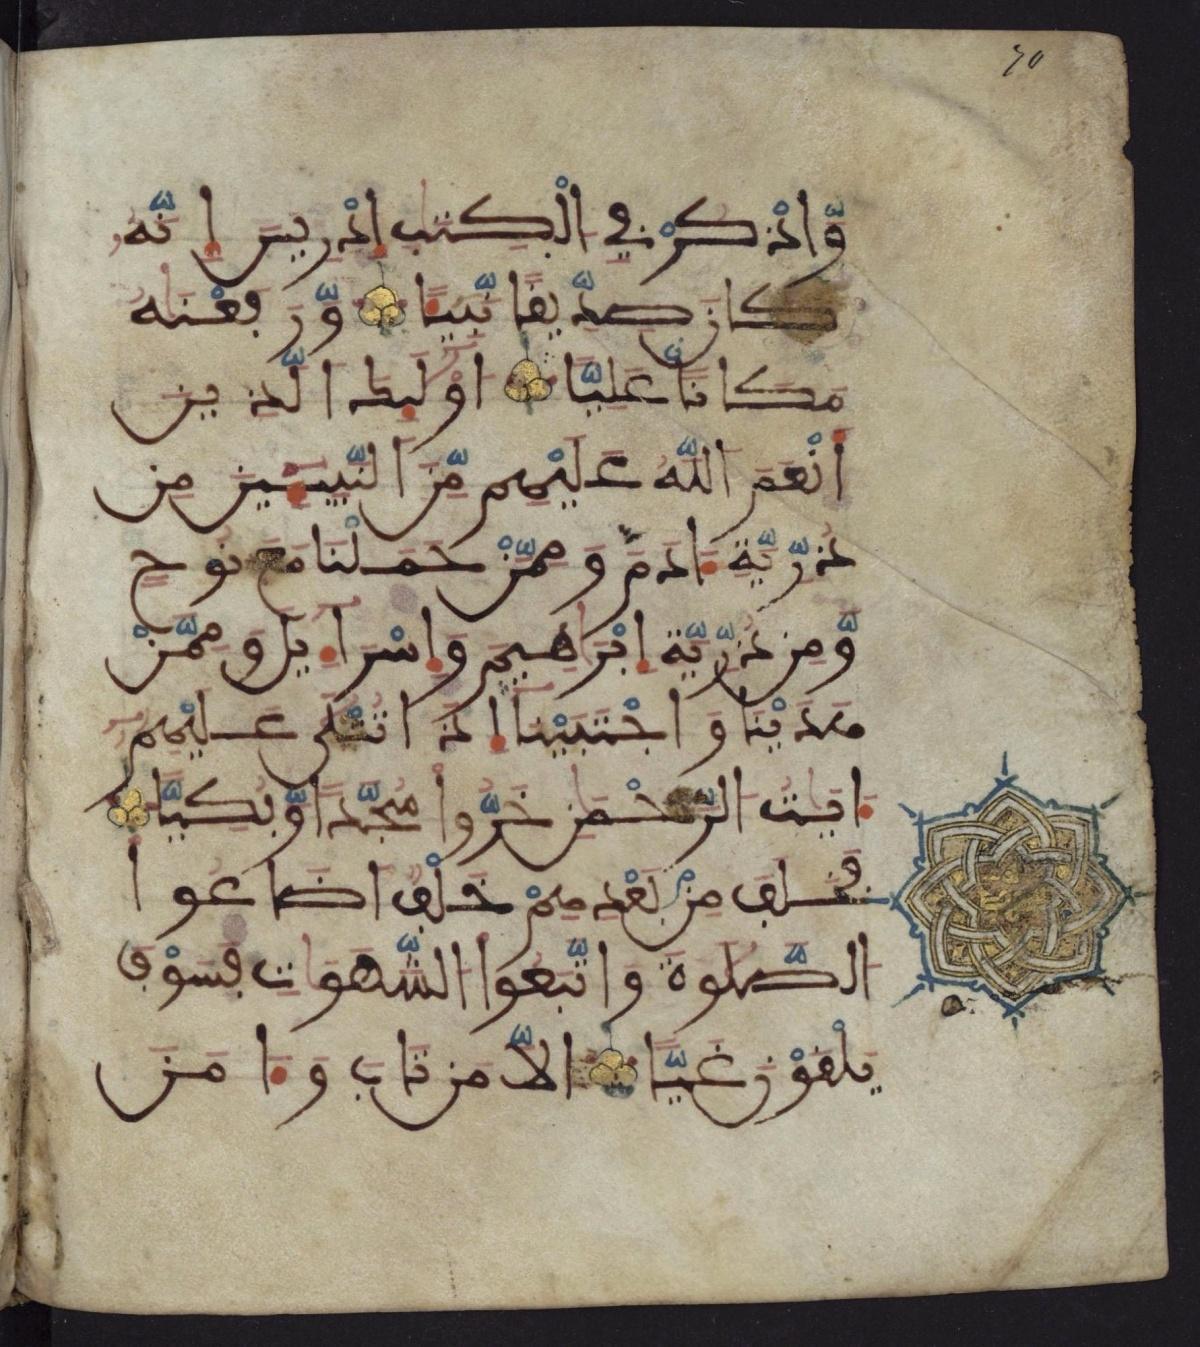 70
وَّاذْكُرْ فِي الْكِتَٰبِ إِدْرِيسَ إِنَّهُ
كَانَ صِدِّيقًا نَّبِيـًٔا وَّرَفَعْنَٰهُ
مَكَانًا عَلِيًّا أُوْلَٰٓئِكَ الَّذِينَ
أَنْعَمَ اللَّهُ عَلَيْهِم مِّنَ النَّبِيـِٕينَ مِن
ذُرِّيَّةِ ءَادَمَ وَمِمَّنْ حَمَلْنَا مَعَ نُوحٍ
وَّمِن ذُرِّيَّةِ إِبْرَاهِيمَ وَإِسْرَآءِيلَ وَمِمَّنْ
هَدَيْنَا وَاجْتَبَيْنَآ إِذَا تُتْلَىٰ عَلَيْهِمُۥٓ
ءَايَٰتُ الرَّحْمَٰنِ خَرُّوا سُجَّدًا وَّبُكِيًّا
فَخَلَفَ مِنۢ بَعْدِهِمْ خَلْفٌ أَضَاعُوا
الصَّلَوٰةَ وَاتَّبَعُوا الشَّهَوَاتِ فَسَوْفَ
يَلْقَوْنَ غَيًّا إِلَّا مَن تَابَ وَءَامَنَ